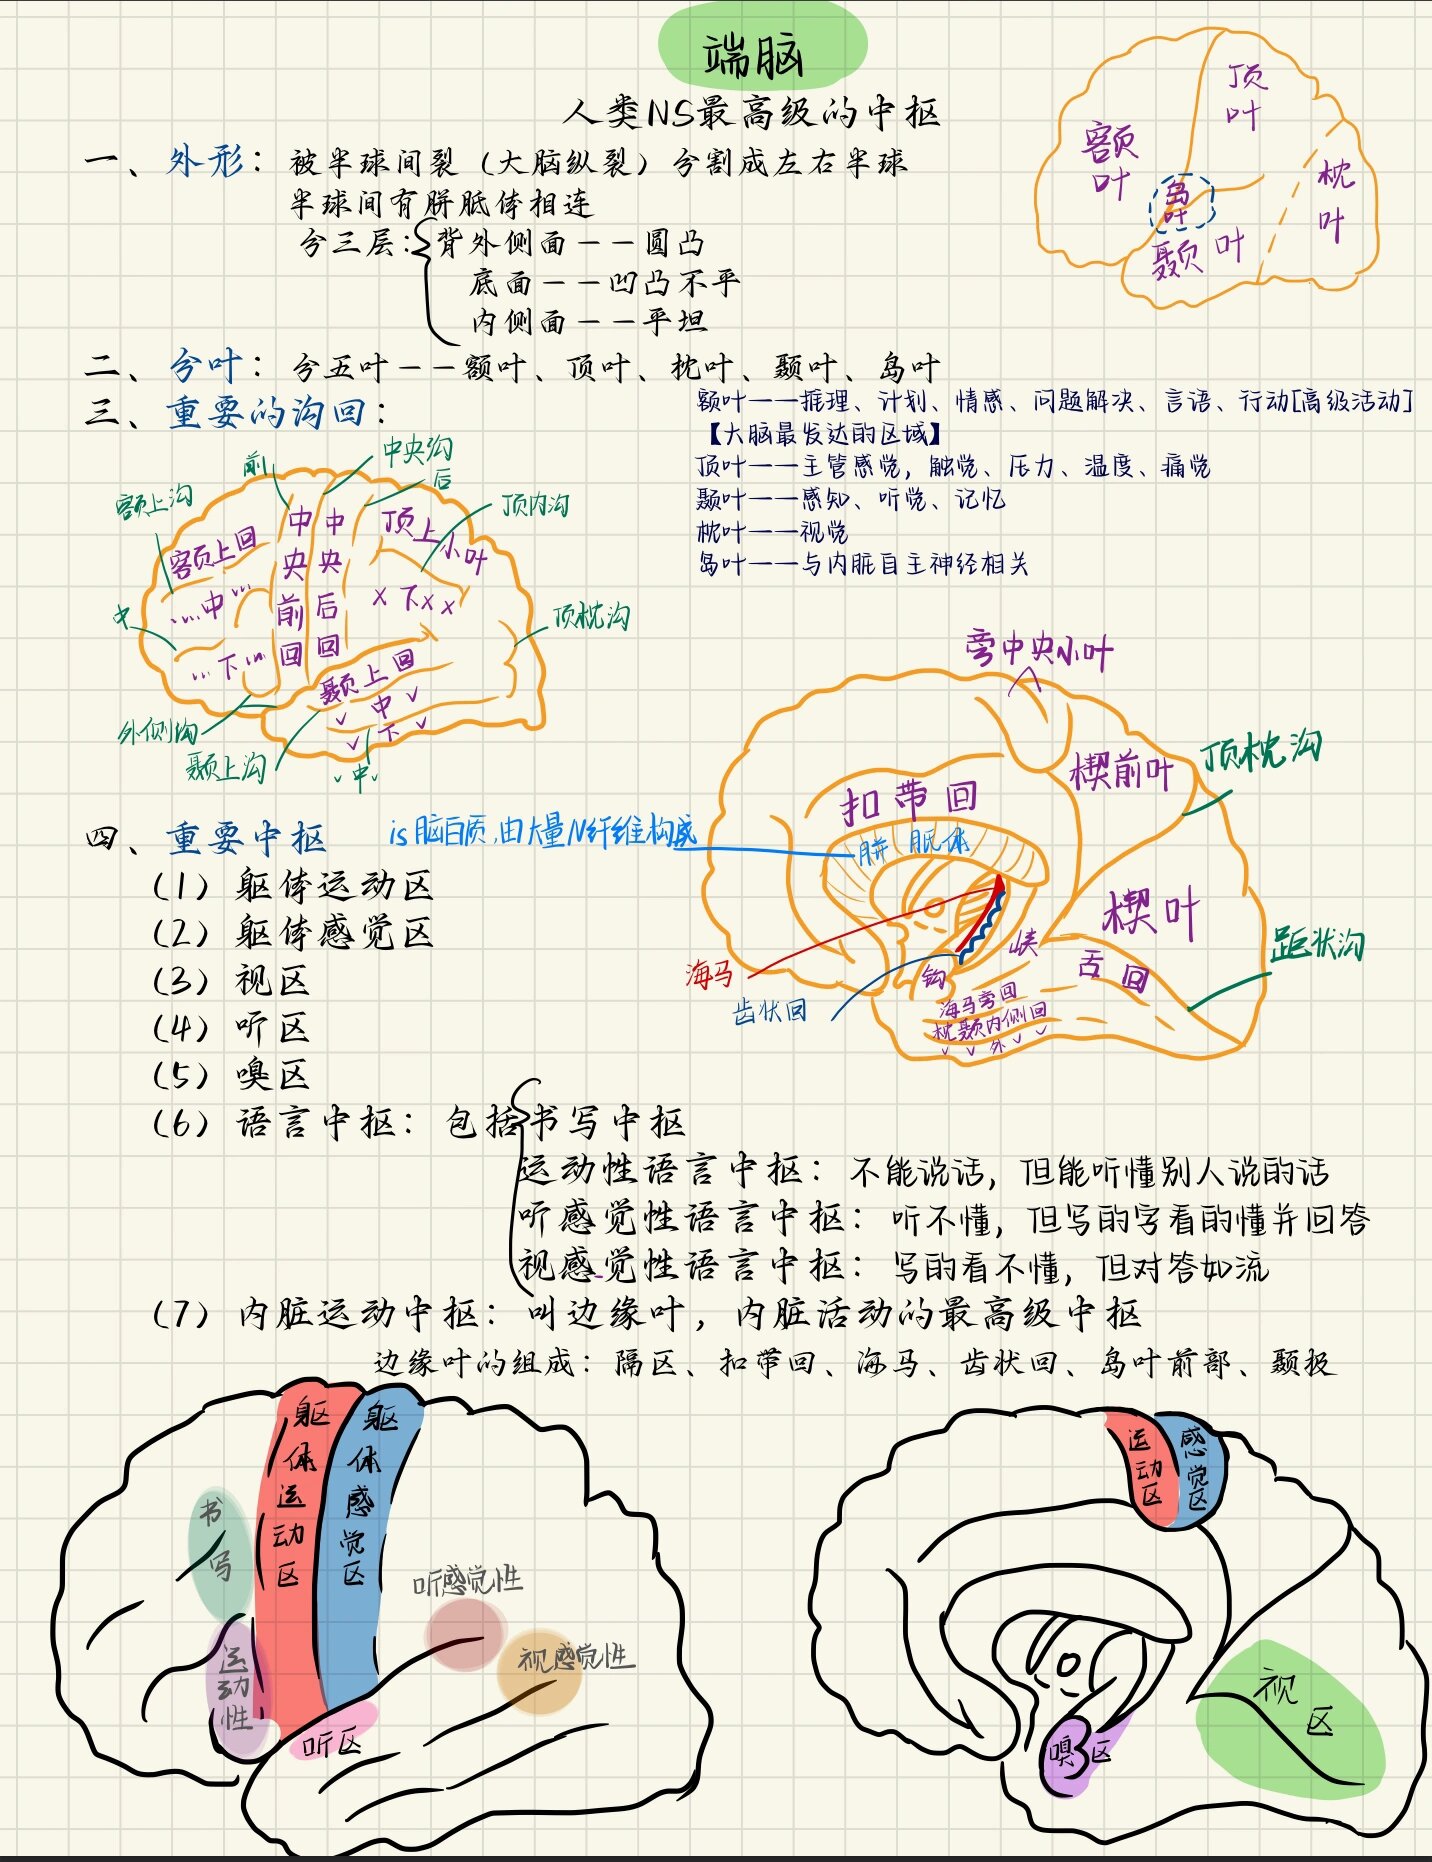 端脑
人类NS最高级的中枢
一、外形：被半球间裂（大脑纵裂）分割成左右半球
半球间有胼胝体相连
分三层：背外侧面——圆凸
底面——凹凸不平
内侧面——平坦
顶叶
额叶
岛叶
枕叶
颞叶
二、分叶：分五叶——额叶、顶叶、枕叶、颞叶、岛叶
三、重要的沟回：
额叶——推理、计划、情感、问题解决、言语、行动[高级活动]
【大脑最发达的区域】
顶叶——主管感觉，触觉、压力、温度、痛觉
颞叶——感知、听觉、记忆
枕叶——视觉
岛叶——与内脏自主神经相关
前
中央沟
后
额上沟
顶内沟
额上回
…中…
…下…
中央前回
中央后回
顶上小叶
x下xx
中
顶枕沟
颞上回
✓中✓
✓下✓
外侧沟
颞上沟
✓中✓
旁中央小叶
楔前叶
顶枕沟
扣带回
胼胝体
楔叶
距状沟
峡
舌回
钩
海马
齿状回
海马旁回
枕颞内侧回
✓✓外✓✓
四、重要中枢
is脑白质,由大量N纤维构成
（1）躯体运动区
（2）躯体感觉区
（3）视区
（4）听区
（5）嗅区
（6）语言中枢：包括书写中枢
运动性语言中枢：不能说话，但能听懂别人说的话
听感觉性语言中枢：听不懂，但写的字看的懂并回答
视感觉性语言中枢：写的看不懂，但对答如流
（7）内脏运动中枢：叫边缘叶，内脏活动的最高级中枢
边缘叶的组成：隔区、扣带回、海马、齿状回、岛叶前部、颞极
躯体运动区
躯体感觉区
书写
运动性
听感觉性
视感觉性
听区
运动区
感觉区
视区
嗅区